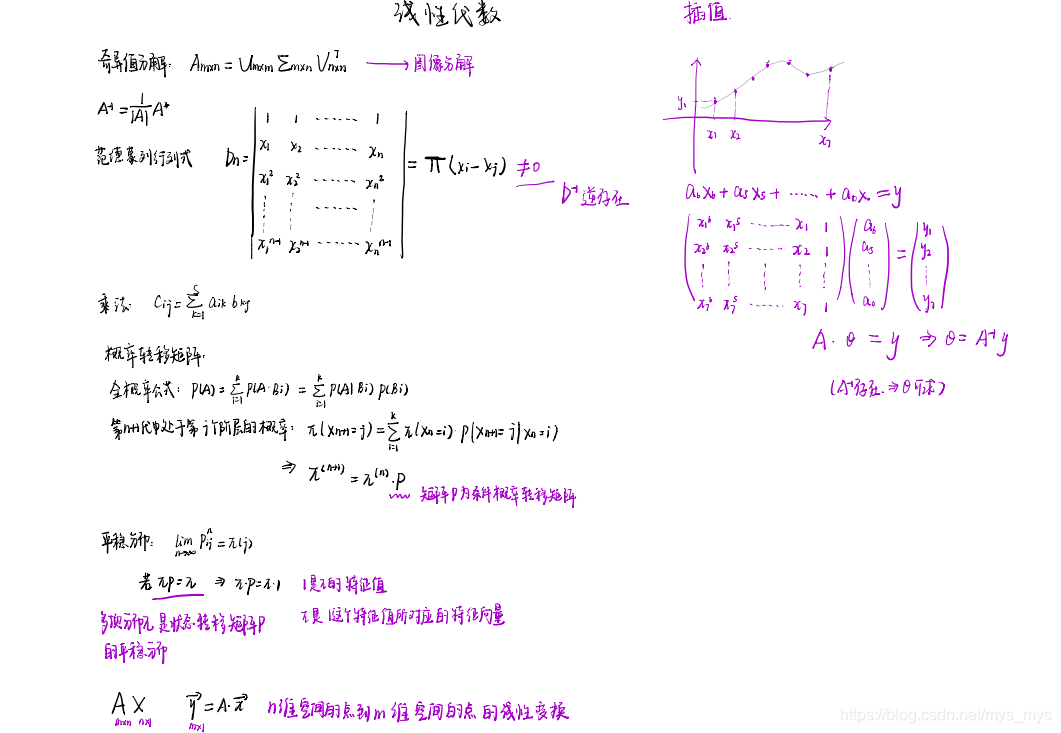 线性代数
奇异值分解: Am×n = Um×m Σm×n Vᵀn×n → 图像分解
A⁻¹ = 1/|A| A*
范德蒙列行列式 Dn = | 1 1 ...... 1 | = π(xi - xj) ≠0
x1 x2 ...... xn
x1² x2² ...... xn²
......
x1ⁿ⁻¹ x2ⁿ⁻¹ ...... xnⁿ⁻¹
D⁻¹ 逆存在
乘法: Cij = Σ(k=1, S) aik bkj
概率转移矩阵:
全概率公式: P(A) = Σ(i=1, k) P(A·Bi) = Σ(i=1, k) P(A|Bi) P(Bi)
第n+1代中处于第j个阶层的概率: π(Xn+1=j) = Σ(i=1, k) π(Xn=i)·P(Xn+1=j|Xn=i)
⇒ π⁽ⁿ⁺¹⁾ = π⁽ⁿ⁾·P
矩阵P为条件概率转移矩阵
平稳分布: lim n→∞ Pijⁿ = π(j)
若 πP=π ⇒ π·P=π·1 1是π的特征值
多项分布π是状态转移矩阵P π是1这个特征值所对应的特征向量
的平稳分布
A X y⃗ = A·x⃗ n维空间的点到m维空间的点的线性变换
m×n n×1 m×1
插值.
y1
x1 x2 x7
a6x6 + a5x5 + ...... + a0x0 = y
x1⁶ x1⁵ ...... x1 1 a6 y1
x2⁶ x2⁵ ...... x2 1 a5 = y2
x7⁶ x7⁵ ...... x7 1 a0 y7
A · θ = y ⇒ θ = A⁻¹y
(A⁻¹存在 ⇒ θ可求)
https://blog.csdn.net/mys_mys